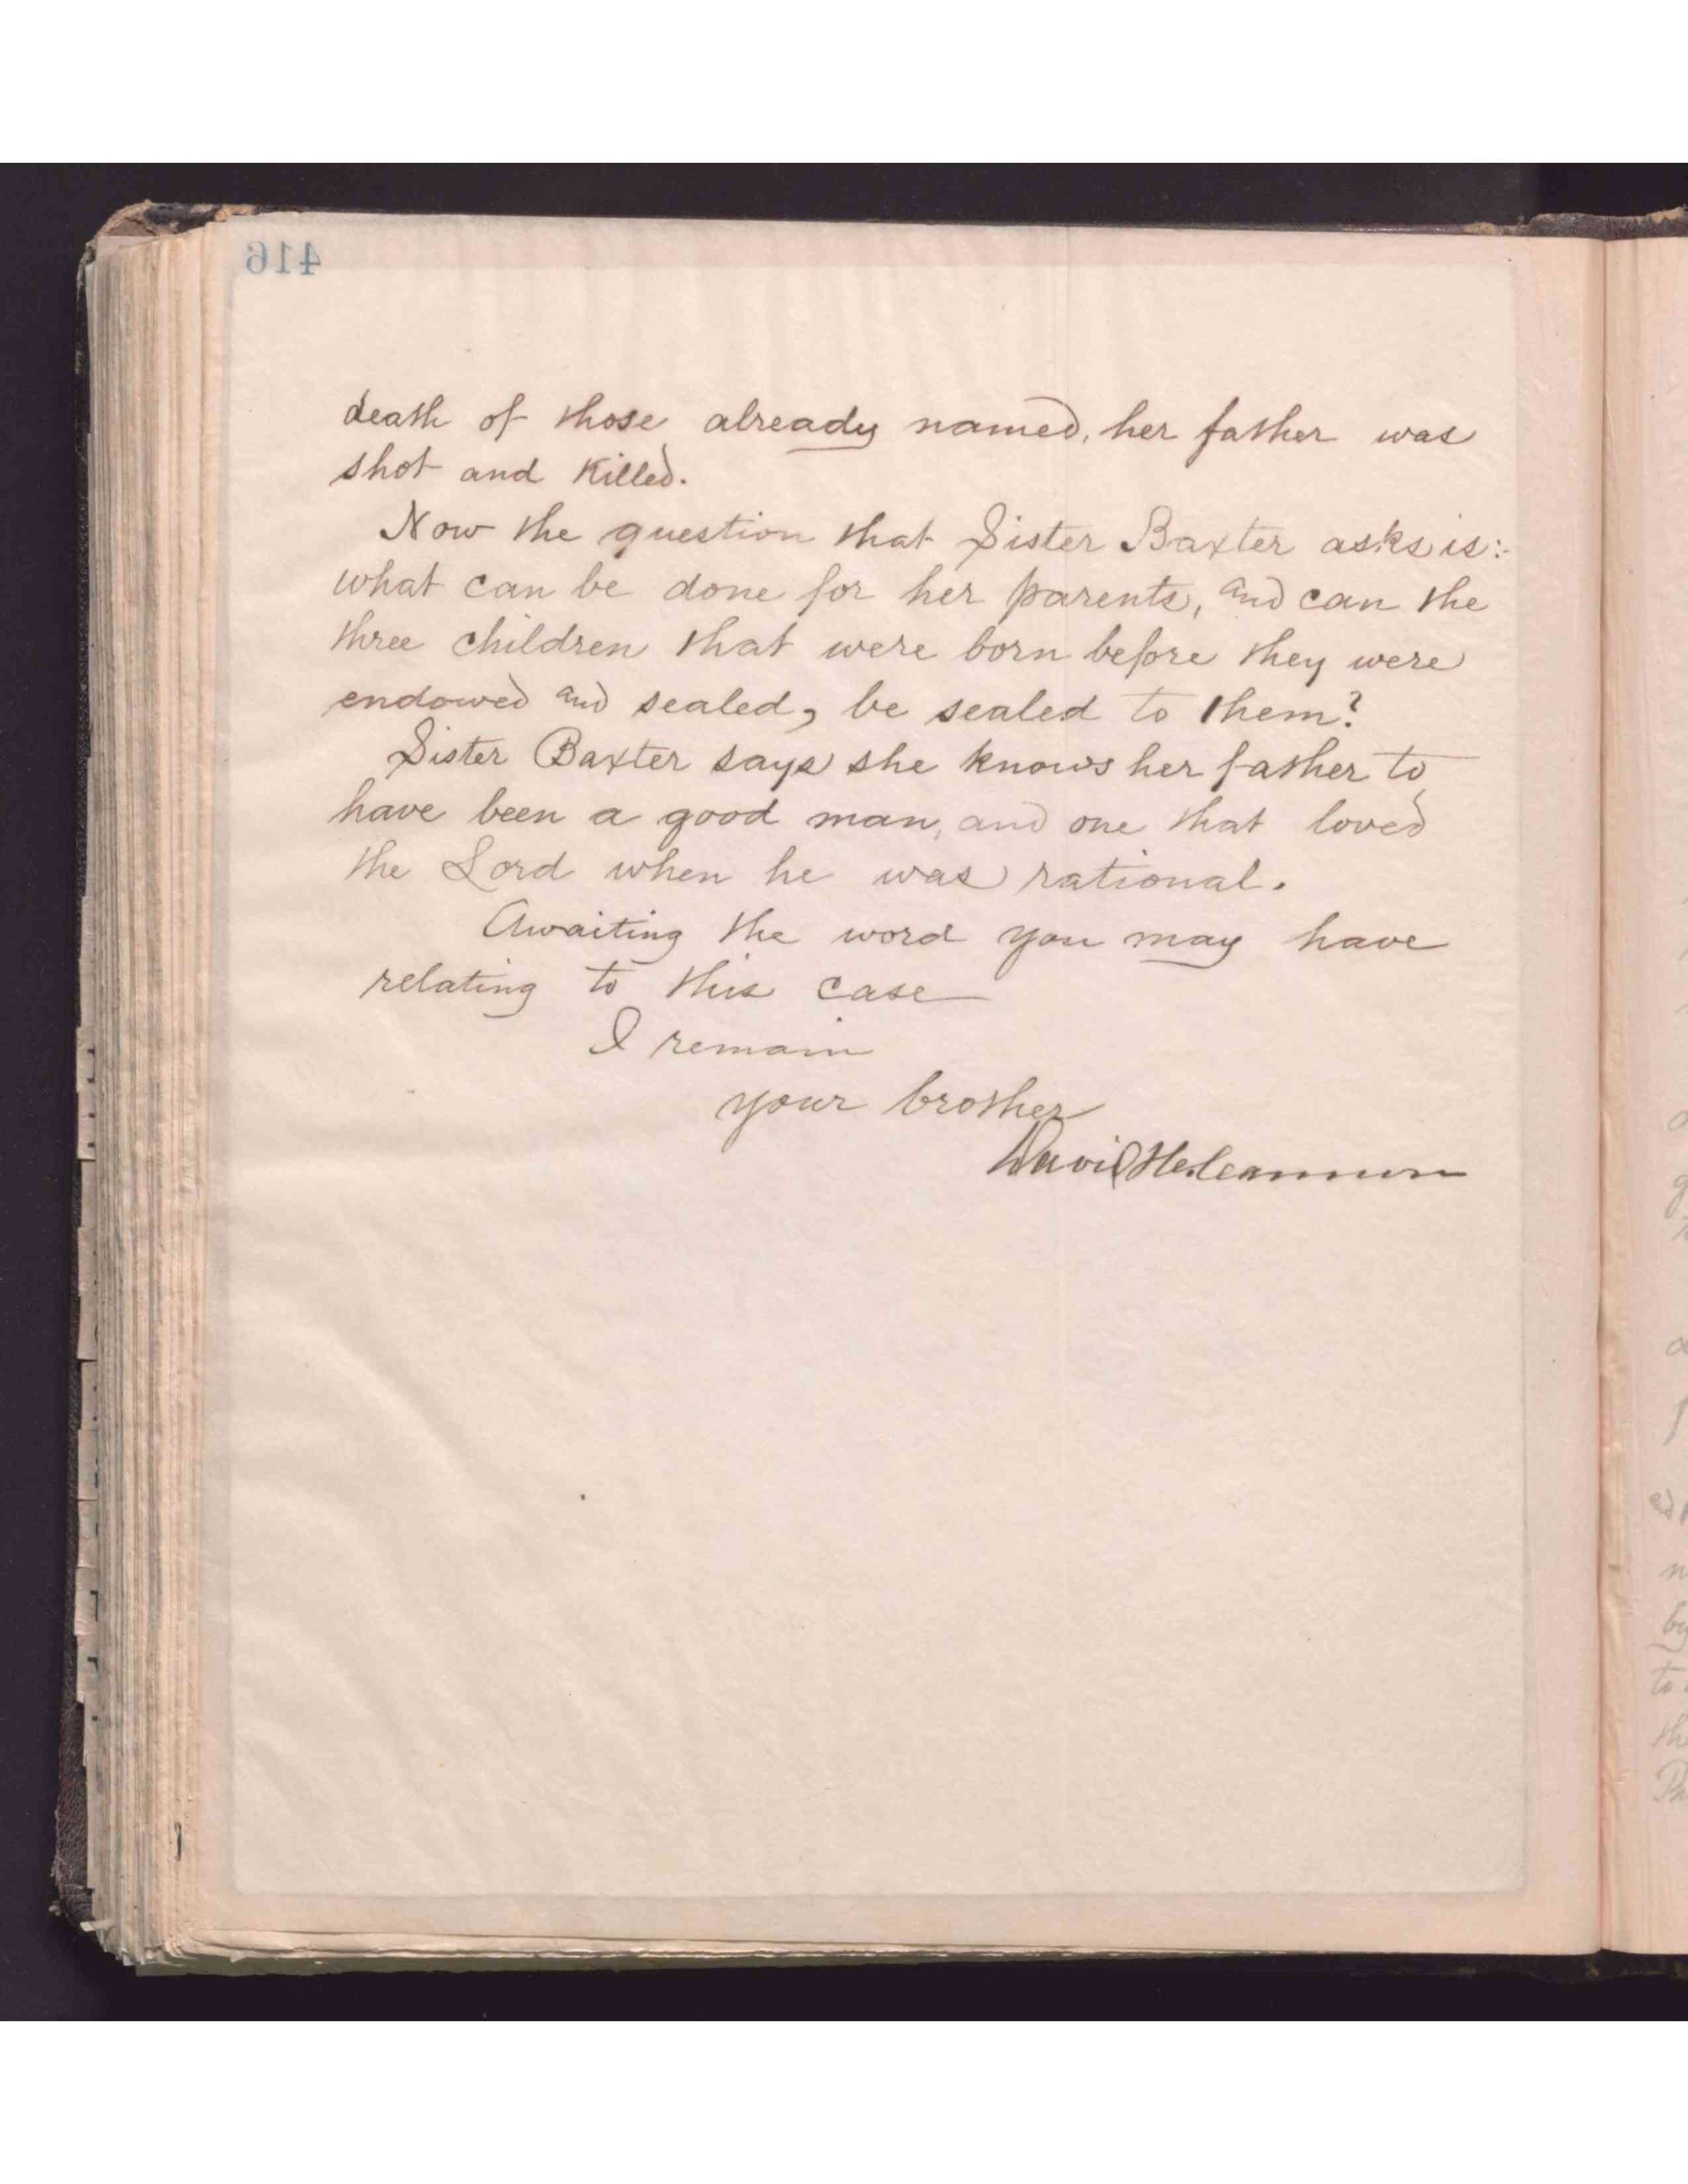 416
death of those already named, her father was
shot and killed.
Now the question that Sister Baxter asks is:-
what can be done for her parents, and can the
three children that were born before they were
endowed and sealed, be sealed to them?
Sister Baxter says she knows her father to
have been a good man, and one that loved
the Lord when he was rational.
Awaiting the word you may have
relating to this case
I remain
your brother
David H. Cannon